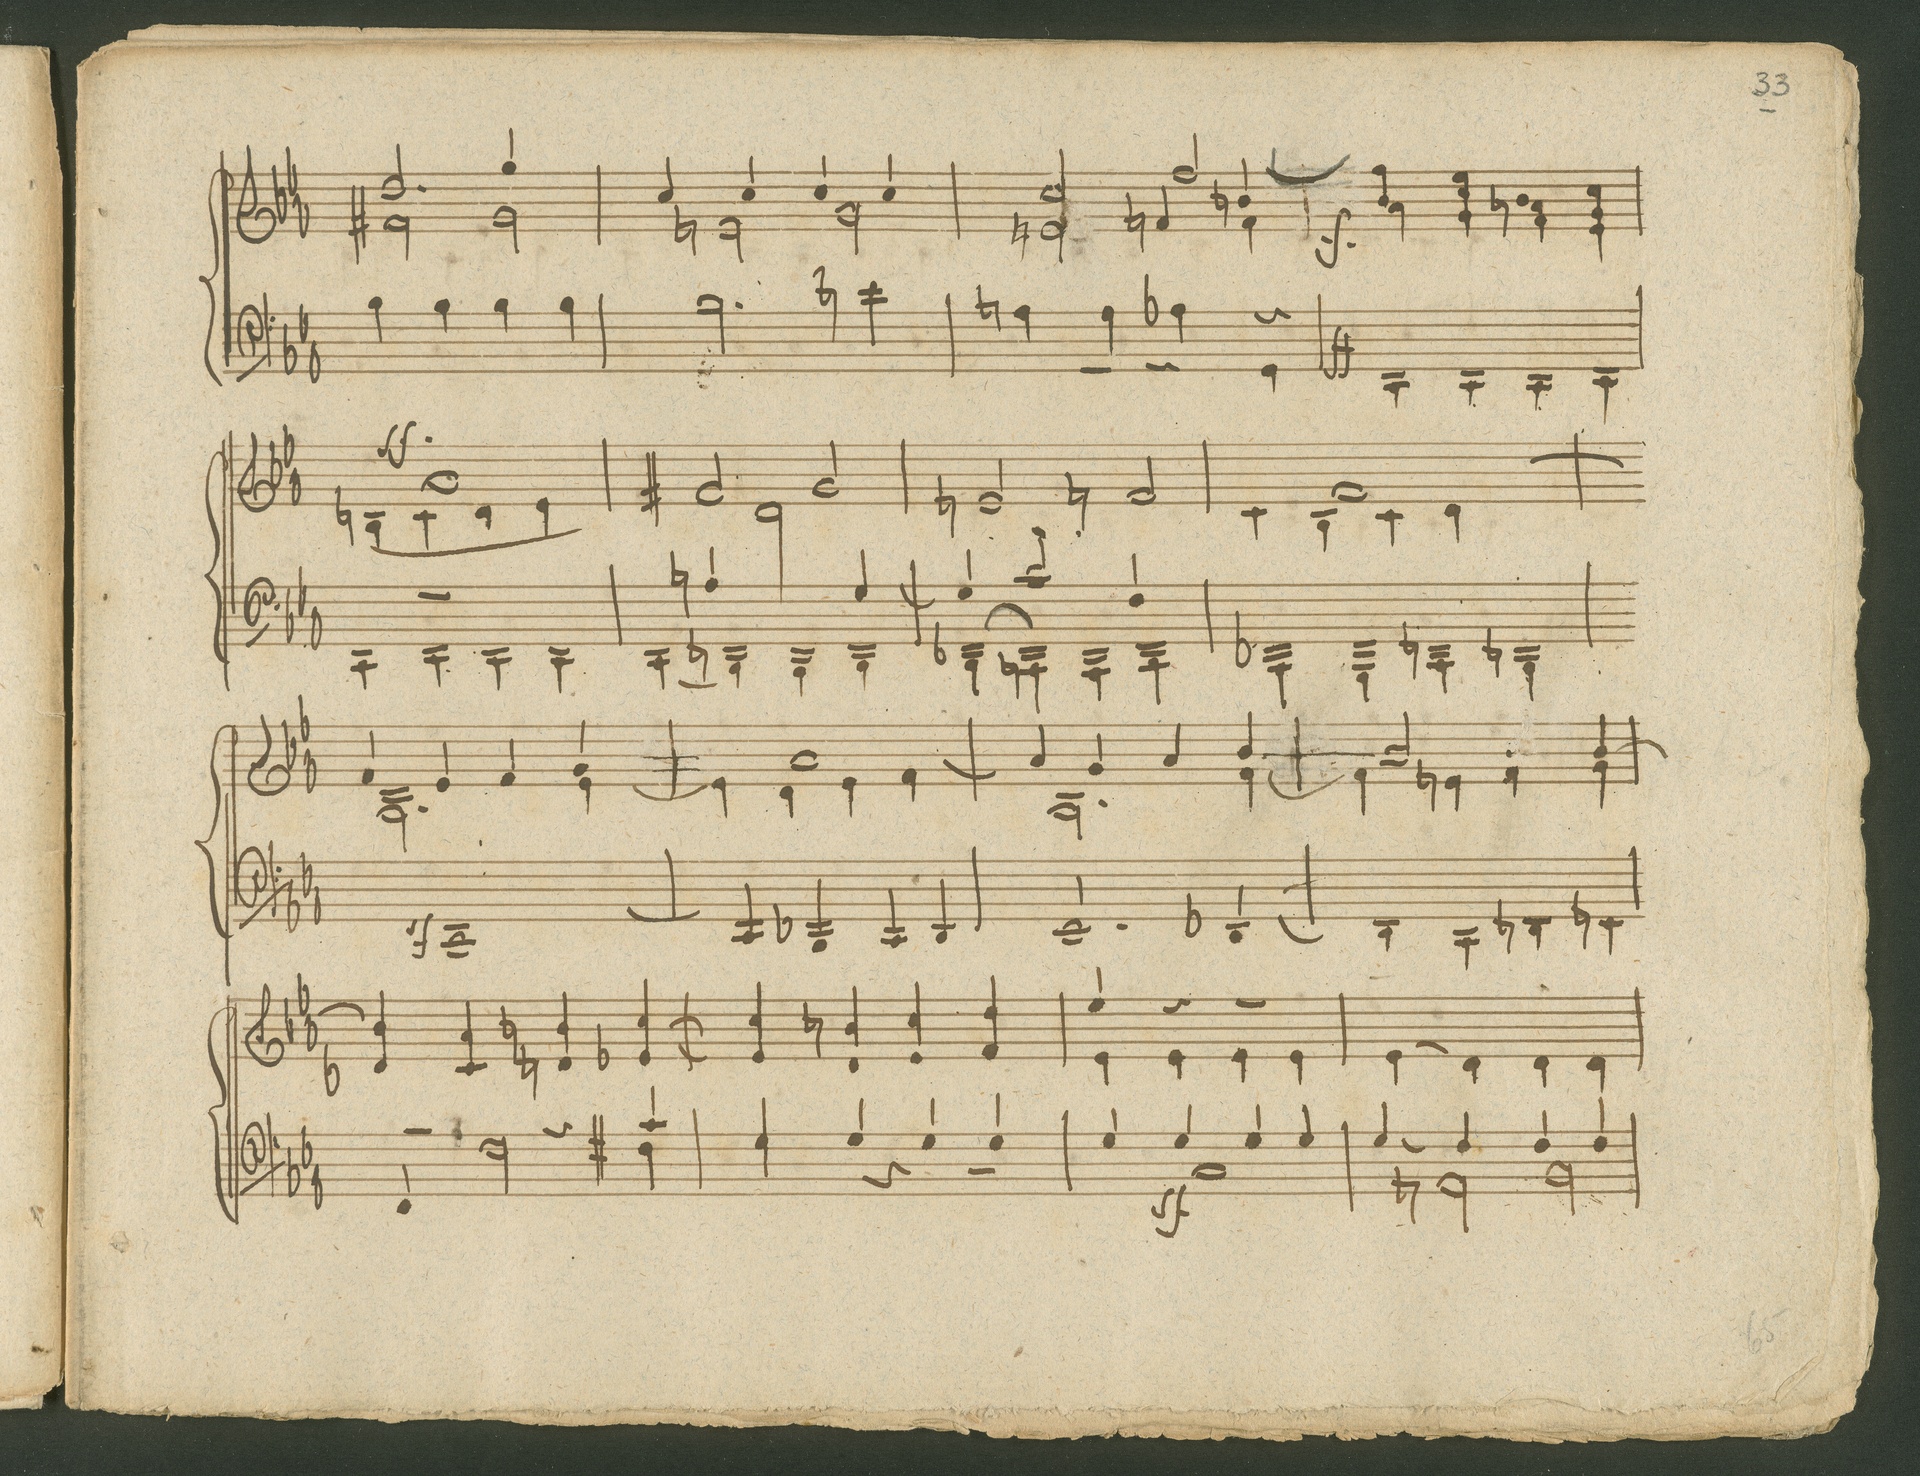 33
sf.
sf.
sf
sf
65